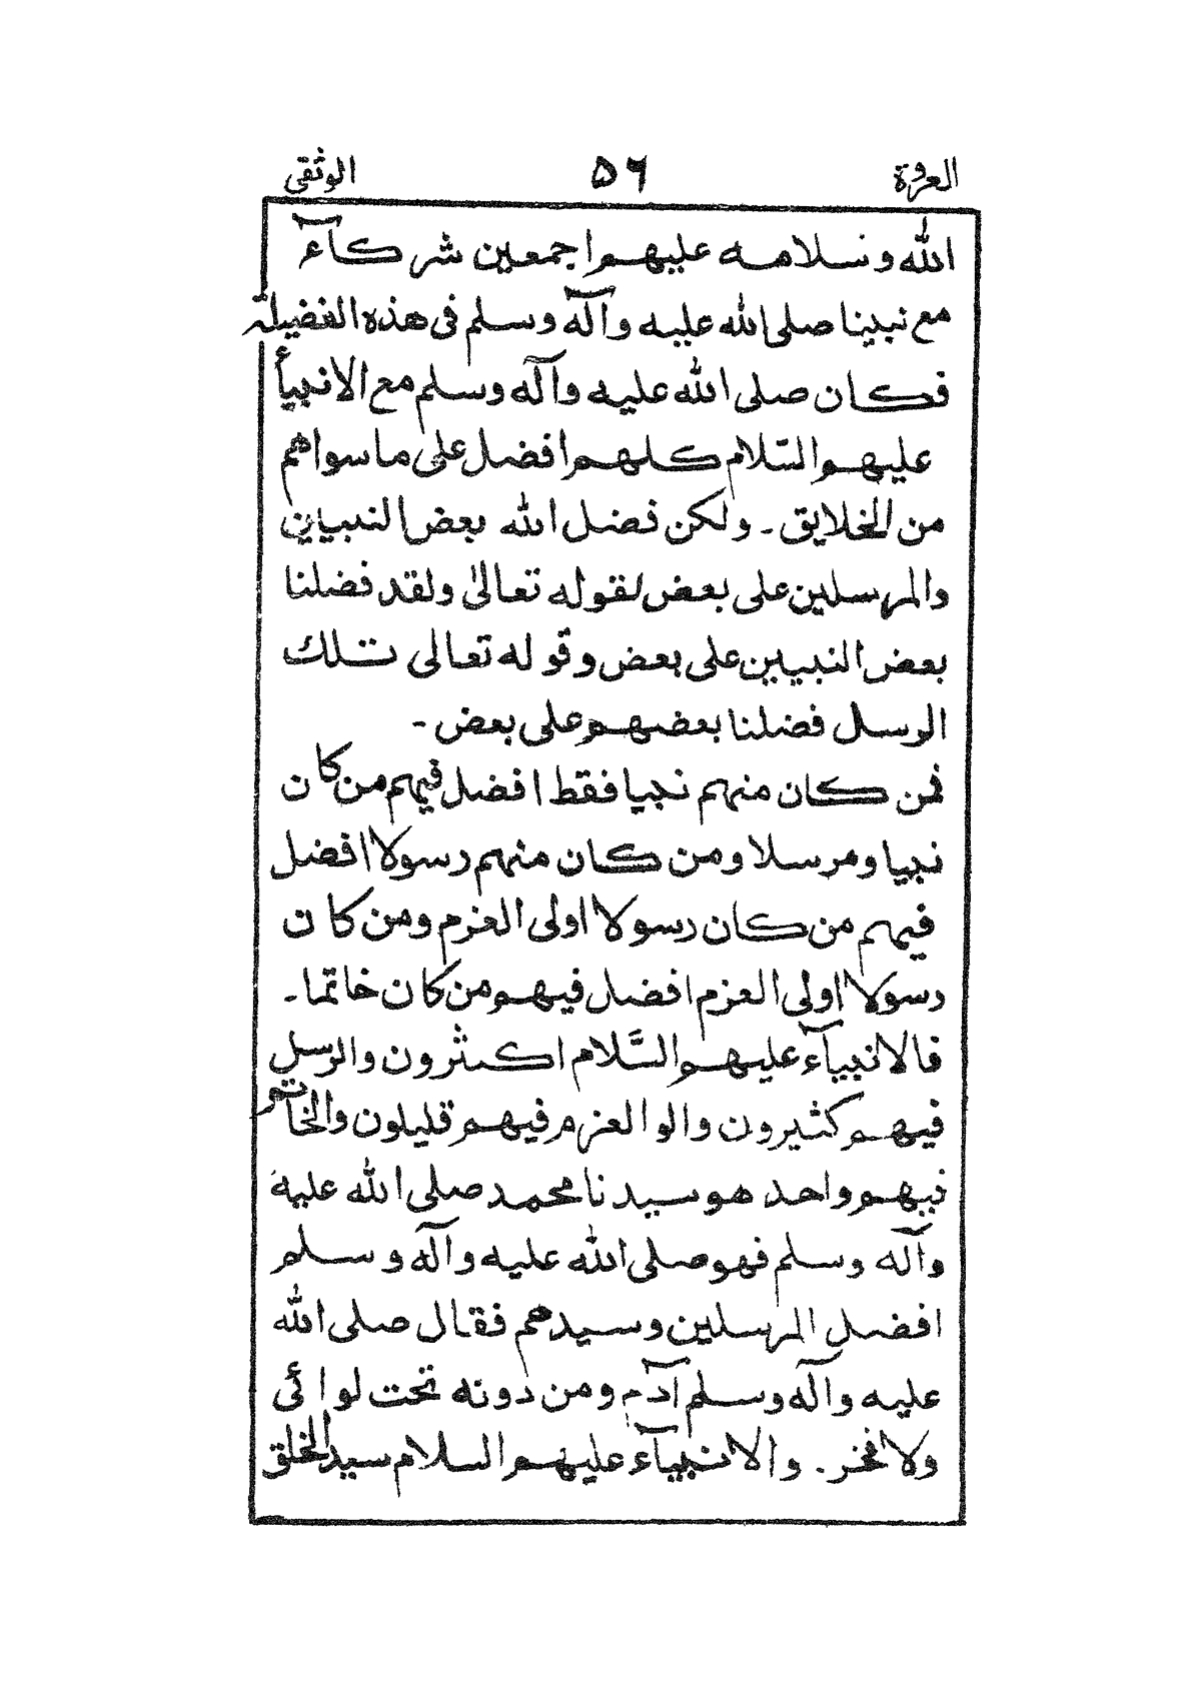 العروة ۵۶ الوثقى
الله و سلامه عليهم اجمعين شركآء
مع نبينا صلى الله عليه وآله وسلم فى هذه الفضيلة
فكان صلى الله عليه وآله وسلم مع الانبيأ
عليهم السّلام كلهم افضل على ما سواهم
من الخلايق ۔ ولكن فضل الله بعض النبيين
والمرسلين على بعض لقوله تعالىٰ ولقد فضلنا
بعض النبيين على بعض وقوله تعالى تلك
الرسل فضلنا بعضهم على بعض ۔
فمن كان منهم نبيا فقط افضل فيهم من كان
نبيا ومرسلا ومن كان منهم رسولا افضل
فيهم من كان رسولا اولى العزم ومن كان
رسولا اولى العزم افضل فيهم من كان خاتما ۔
فالانبيآء عليهم السَّلام اكثرون والرسل
فيهم كثيرون والوا العزم فيهم قليلون والخاتم
فيهم واحد هو سيدنا محمد صلى الله عليه
وآله وسلم فهو صلى الله عليه وآله وسلم
افضل المرسلين وسيدهم فقال صلى الله
عليه وآله وسلم آدم ومن دونه تحت لوائى
ولا فخر ۔ والانبيآء عليهم السلام سيد الخلق